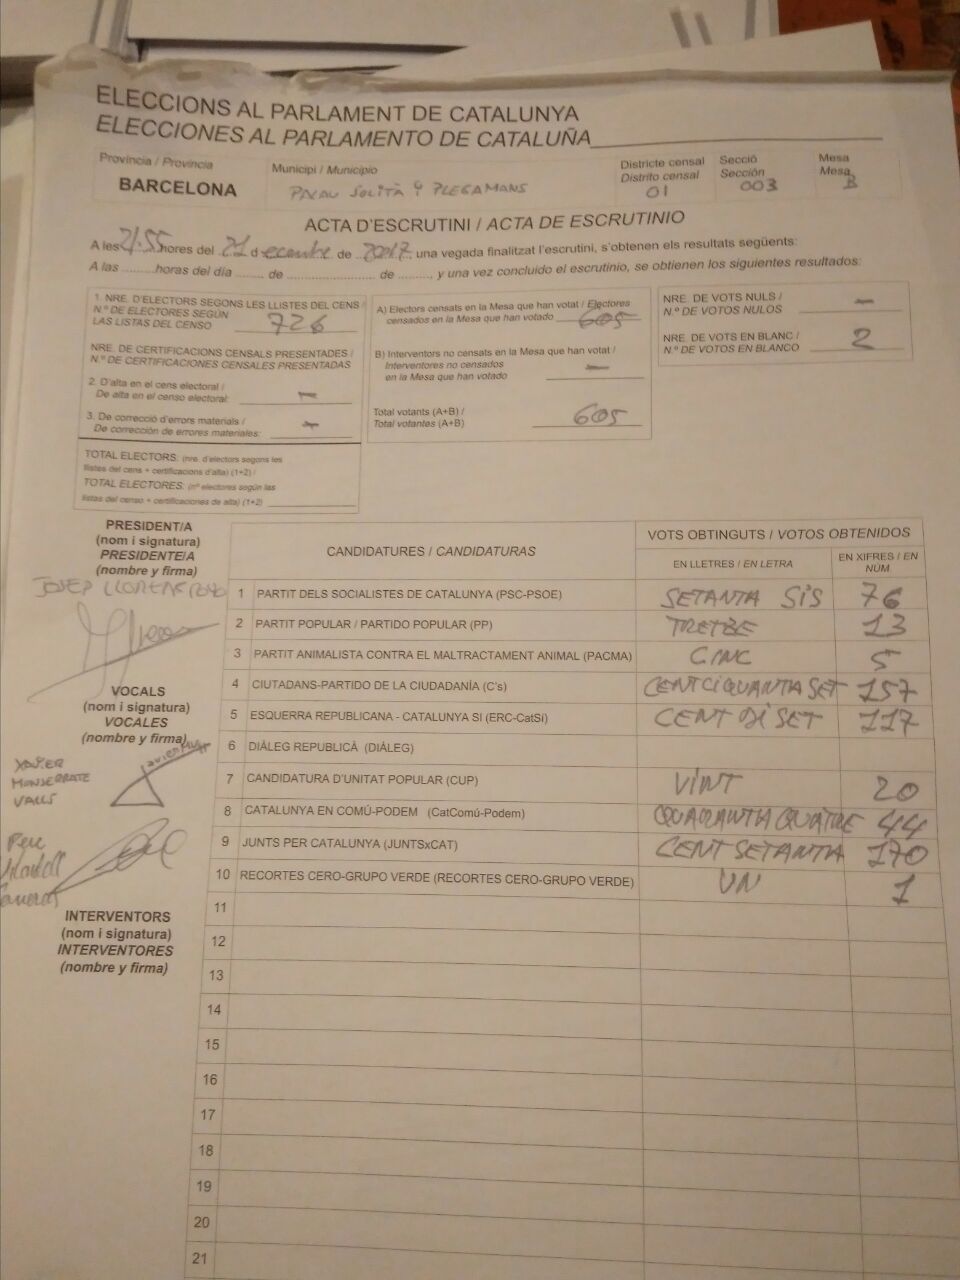 ELECCIONS AL PARLAMENT DE CATALUNYA
ELECCIONES AL PARLAMENTO DE CATALUÑA
Provincia / Provincia
BARCELONA
Municipi / Municipio
PALAU SOLITÀ Y PLEGAMANS
Districte censal
Distrito censal
01
Secció
Sección
003
Mesa
Mesa
B
ACTA D'ESCRUTINI / ACTA DE ESCRUTINIO
A les 21:55 hores del 21 d ecembre de 2017 una vegada finalitzat l'escrutini, s'obtenen els resultats següents:
A las ......... horas del día ........ de ........................ de ........., y una vez concluido el escrutinio, se obtienen los siguientes resultados:
1. NRE. D'ELECTORS SEGONS LES LLISTES DEL CENS /
N.º DE ELECTORES SEGÚN
LAS LISTAS DEL CENSO 726
NRE. DE CERTIFICACIONS CENSALS PRESENTADES /
N.º DE CERTIFICACIONES CENSALES PRESENTADAS
2. D'alta en el cens electoral /
De alta en el censo electoral: —
3. De correcció d'errors materials /
De corrección de errores materiales: —
TOTAL ELECTORS: (nre. d'electors segons les
llistes del cens + certificacions d'alta) (1+2) /
TOTAL ELECTORES: (nº electores según las
listas del censo + certificaciones de alta) (1+2)
A) Electors censats en la Mesa que han votat / Electores
censados en la Mesa que han votado 605
B) Interventors no censats en la Mesa que han votat /
Interventores no censados
en la Mesa que han votado —
Total votants (A+B) /
Total votantes (A+B) 605
NRE. DE VOTS NULS /
N.º DE VOTOS NULOS —
NRE. DE VOTS EN BLANC /
N.º DE VOTOS EN BLANCO 2
PRESIDENT/A
(nom i signatura)
PRESIDENTE/A
(nombre y firma)
JOSEP
VOCALS
(nom i signatura)
VOCALES
(nombre y firma)
XAVIER
MONSERRATE
VALLS
Pere
INTERVENTORS
(nom i signatura)
INTERVENTORES
(nombre y firma)
CANDIDATURES / CANDIDATURAS
VOTS OBTINGUTS / VOTOS OBTENIDOS
EN LLETRES / EN LETRA
EN XIFRES / EN NÚM.
1 PARTIT DELS SOCIALISTES DE CATALUNYA (PSC-PSOE) SETANTA SIS 76
2 PARTIT POPULAR / PARTIDO POPULAR (PP) TRETZE 13
3 PARTIT ANIMALISTA CONTRA EL MALTRACTAMENT ANIMAL (PACMA) CINC 5
4 CIUTADANS-PARTIDO DE LA CIUDADANÍA (C's) CENT CIQUANTA SET 157
5 ESQUERRA REPUBLICANA - CATALUNYA SI (ERC-CatSí) CENT DI SET 117
6 DIÀLEG REPUBLICÀ (DIÀLEG)
7 CANDIDATURA D'UNITAT POPULAR (CUP) VINT 20
8 CATALUNYA EN COMÚ-PODEM (CatComú-Podem) QUARANTA QUATRE 44
9 JUNTS PER CATALUNYA (JUNTSxCAT) CENT SETANTA 170
10 RECORTES CERO-GRUPO VERDE (RECORTES CERO-GRUPO VERDE) UN 1
11
12
13
14
15
16
17
18
19
20
21